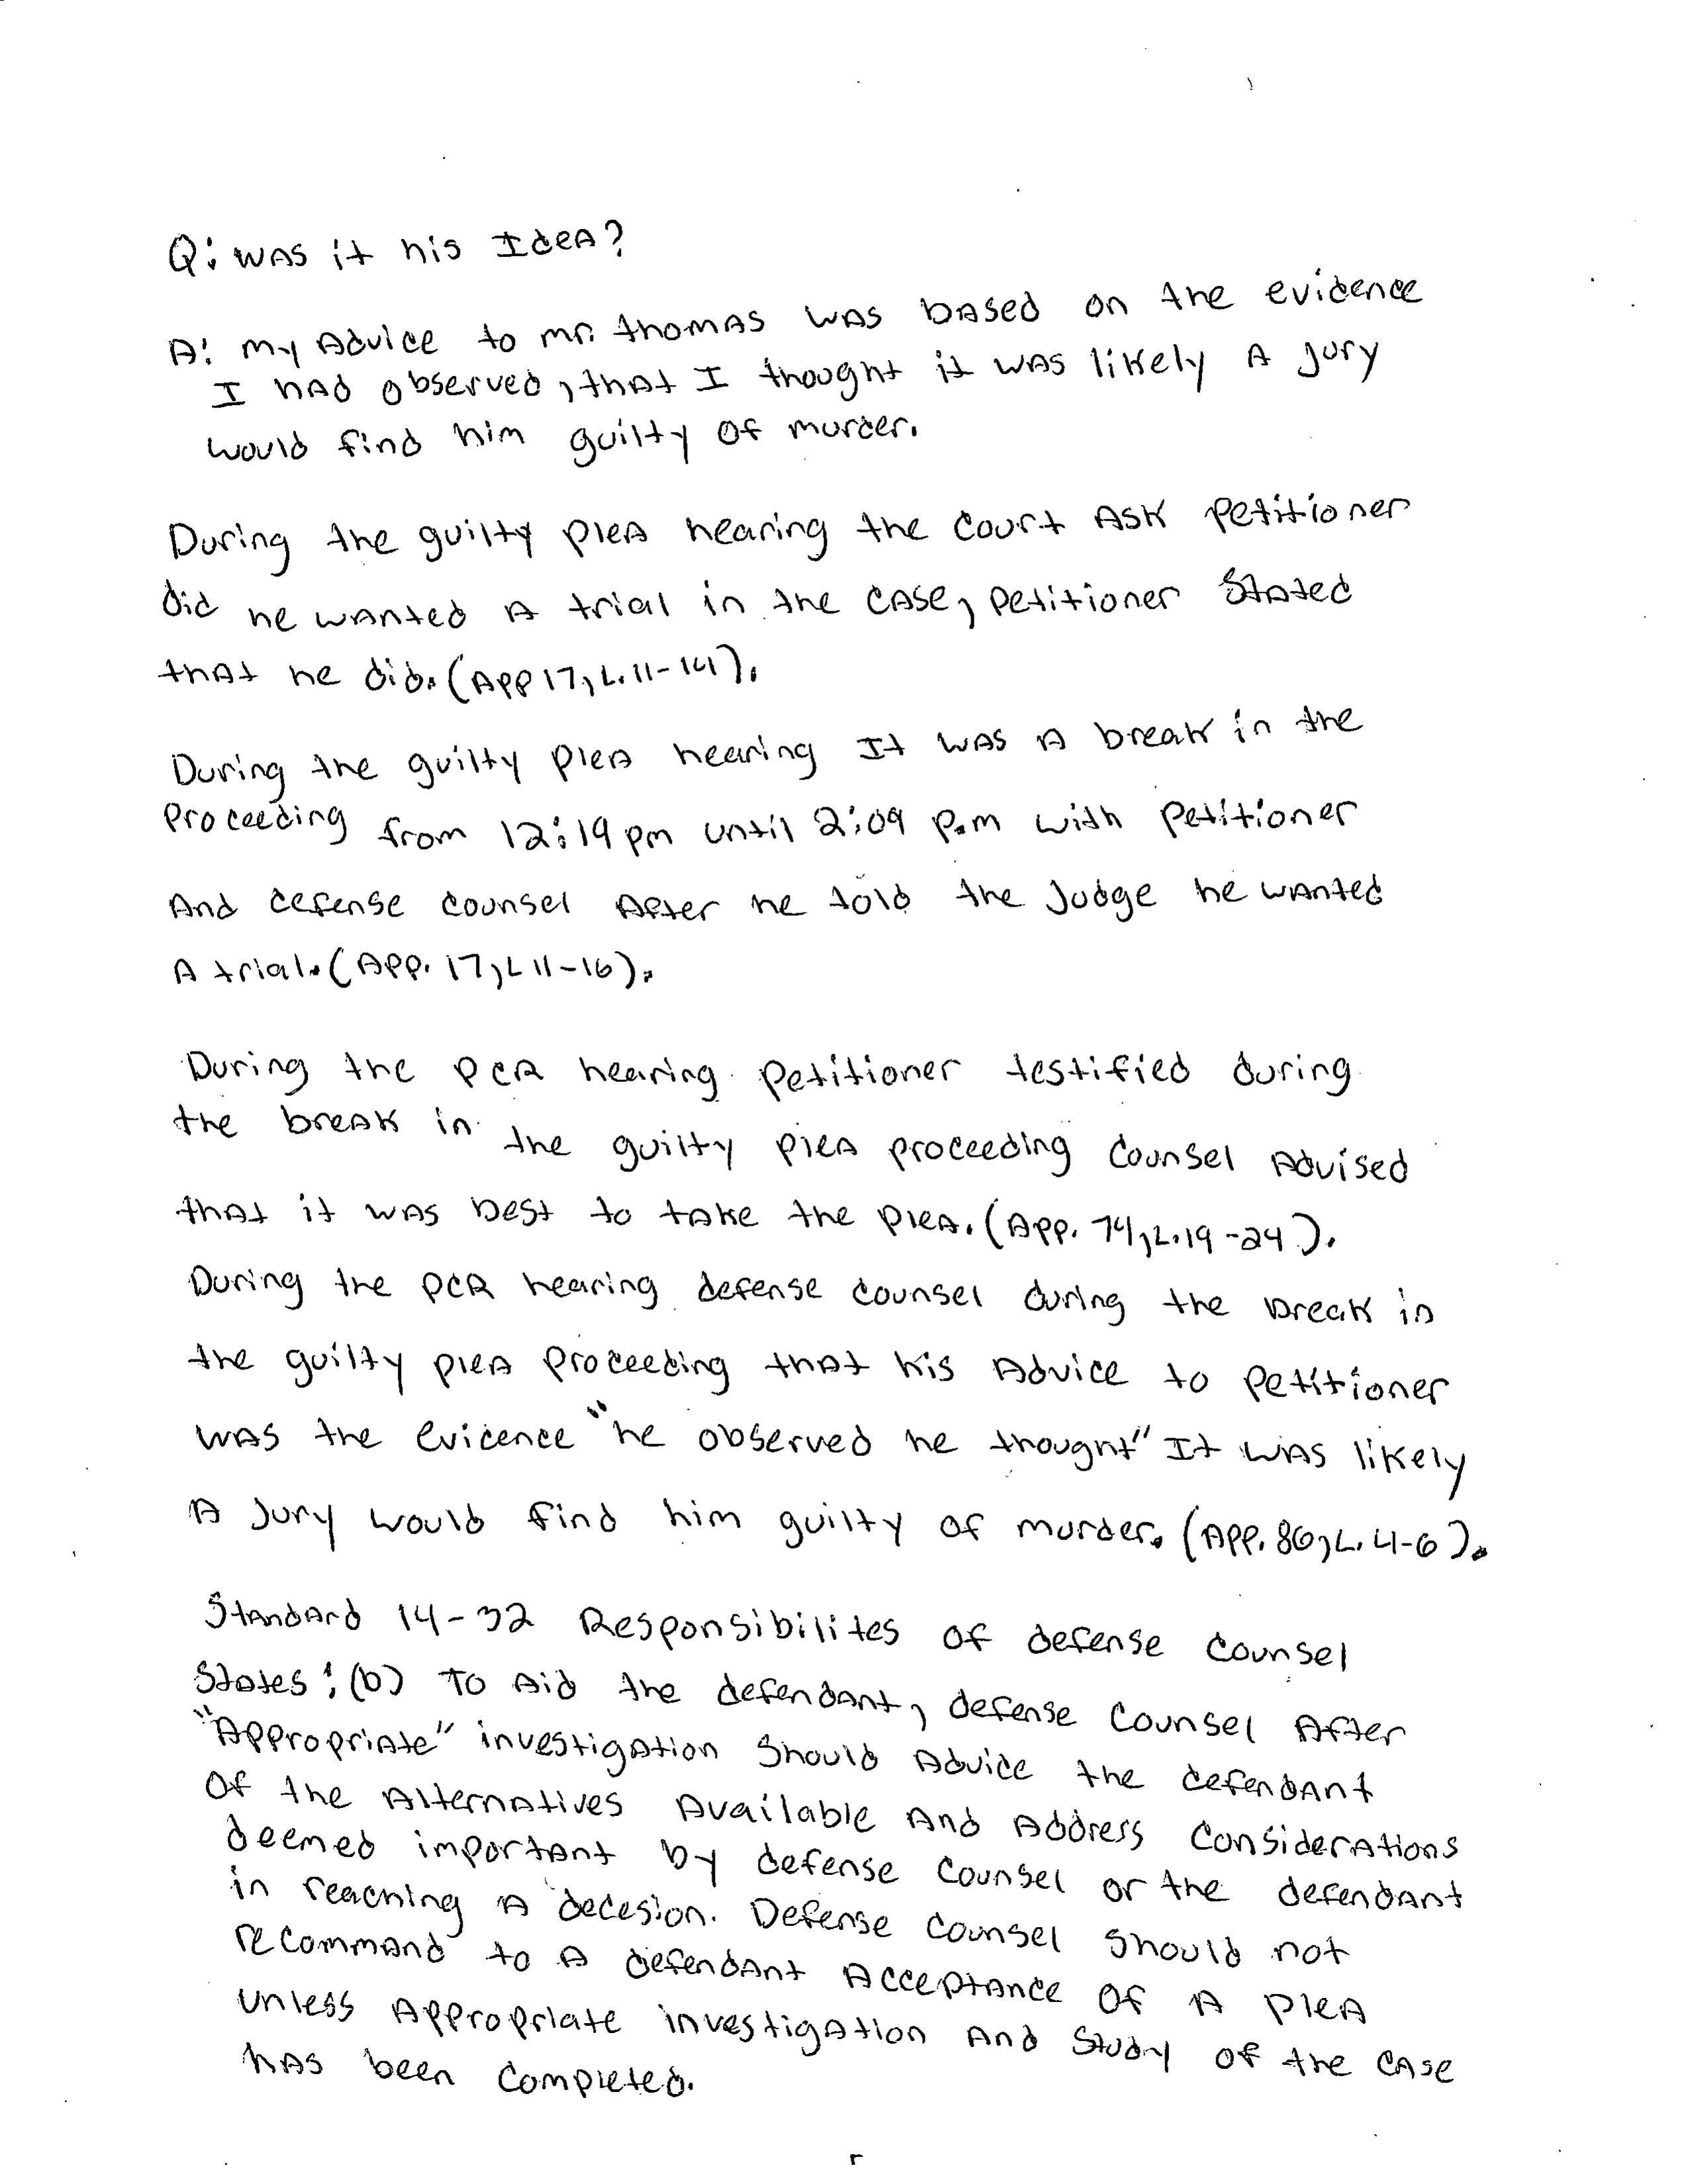 Q: was it his IdeA?
A: my Advice to mr. thomAs wAs bAsed on the evidence
I hAd observed, thAt I thought it wAs likely A jury
would find him guilty of murder.
During the guilty pleA hearing the court Ask petitioner
did he wAnted A trial in the cAse, petitioner StAted
thAt he did. (App 17, L. 11-14).
During the guilty pleA hearing It wAs A breAk in the
proceeding from 12:19 pm until 2:09 p.m with petitioner
And defense counsel After he told the Judge he wAnted
A trial. (App. 17, L 11-16).
During the PCR hearing petitioner testified during
the breAk in the guilty pleA proceeding counsel Advised
thAt it wAs best to tAke the pleA. (App. 74, L. 19-24).
During the PCR hearing defense counsel during the break in
the guilty pleA proceeding thAt his Advice to petitioner
wAs the evidence "he observed he thought" It wAs likely
A Jury would find him guilty of murder. (App. 86, L. 4-6).
StAndArd 14-32 Responsibilites of defense counsel
StAtes: (b) To Aid the defendAnt, defense counsel After
"AppropriAte" investigAtion should Advice the defendAnt
of the AlternAtives AvAilable And Address considerAtions
deemed importAnt by defense counsel or the defendAnt
in reaching A decesion. Defense counsel should not
recommAnd to A defendAnt AcceptAnce of A pleA
unless AppropriAte investigAtion And Study of the cAse
hAs been completed.